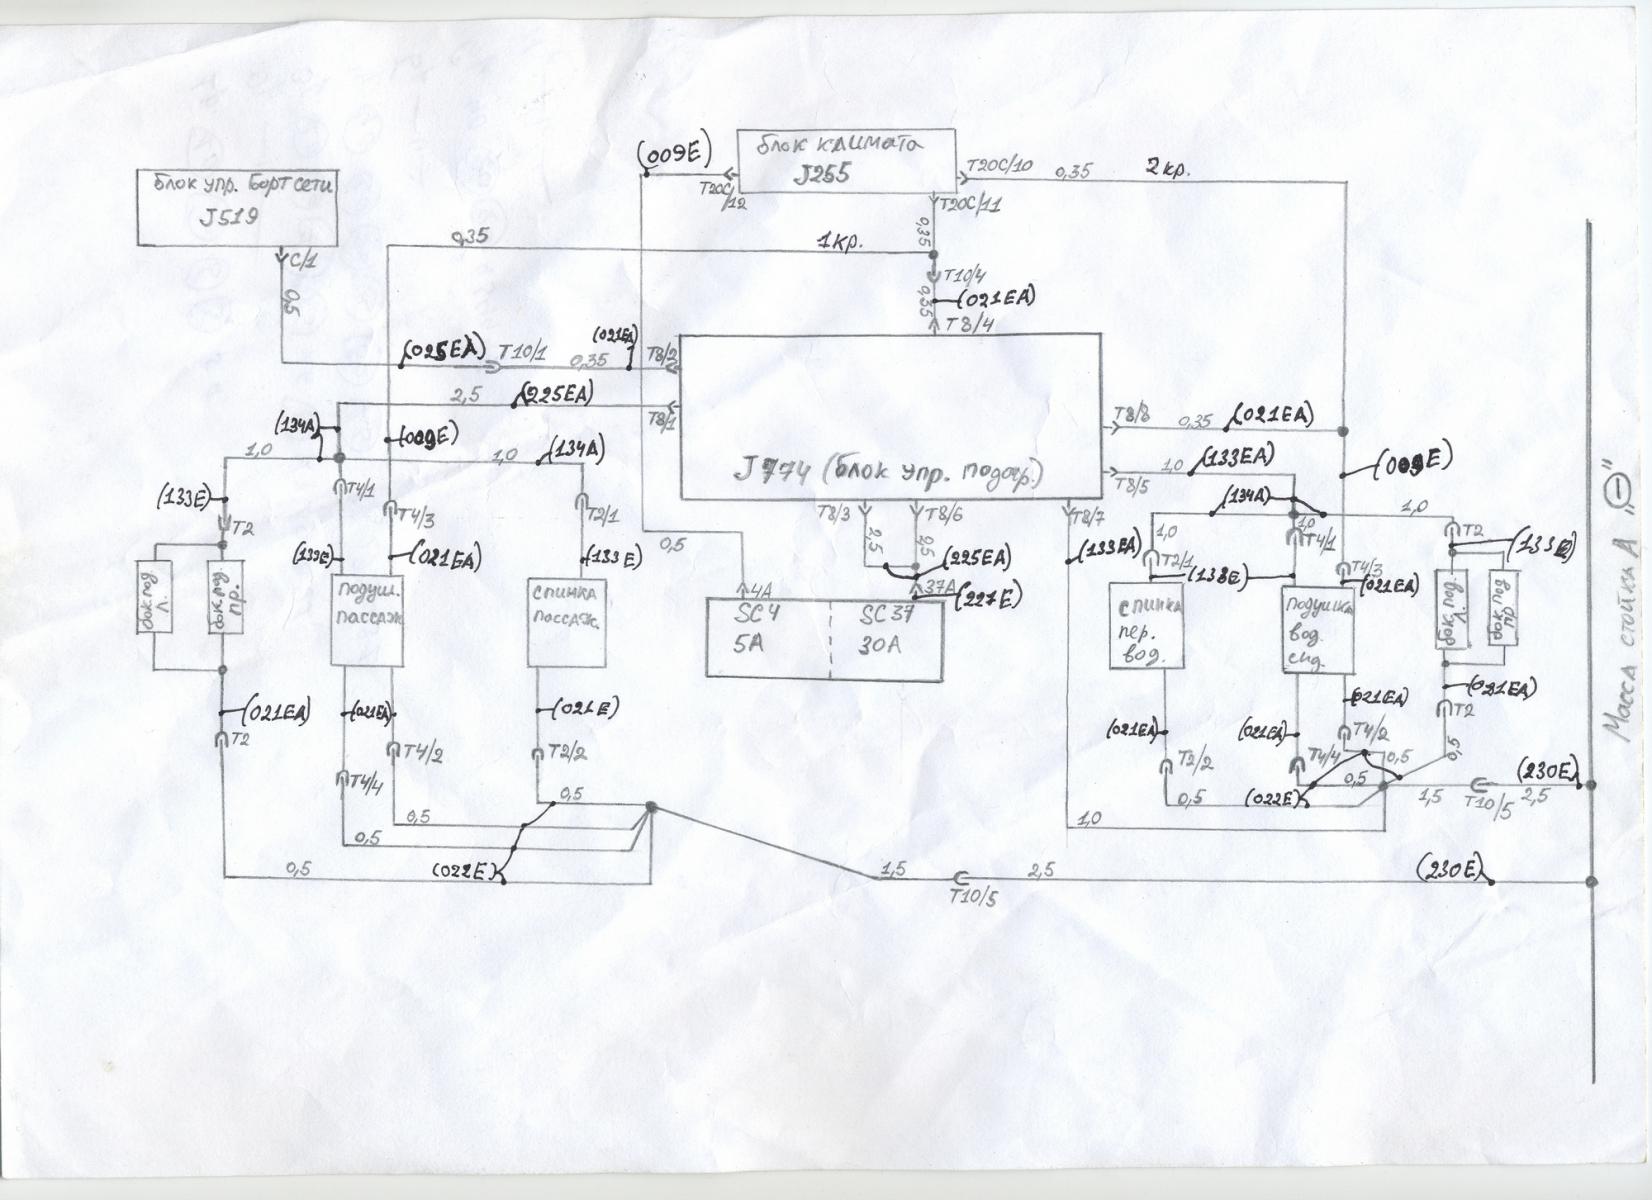 блок климата
J255
(009E)
T20C/12
T20C/10
0,35
2кр.
T20C/11
блок упр. Борт сети
J519
C/1
0,5
0,35
1кр.
0,35
T10/4
0,35
(021EA)
T8/4
(025EA)
T10/1
0,35
(021EA)
T8/2
2,5
(225EA)
T8/1
T8/8
0,35
(021EA)
(134A)
1,0
(009E)
1,0
(134A)
J774 (блок упр. подогр.)
T8/5
1,0
(133EA)
(009E)
(133E)
T2
T4/1
T4/3
T2/1
T8/3
T8/6
T8/7
2,5
2,5
0,5
(134A)
1,0
1,0
1,0
T4/1
T2
(133E)
(021EA)
(133E)
(225EA)
(133EA)
T2/1
(133E)
T4/3
(021EA)
(133E)
4A
37A
(227E)
бок.под. Л.
бок.под. пр.
подуш.
пассаж.
спинка
пассаж.
SC4
5A
SC37
30A
спинка
пер.
вод.
подушка
вод.
сид.
бок. под. Л
бок. под пр
Масса стойка А "−"
(021EA)
T2
(021EA)
T4/2
T4/4
(021E)
T2/2
(021EA)
T2/2
(021EA)
T4/4
(021EA)
T4/2
(021EA)
T2
0,5
0,5
0,5
0,5
0,5
(022E)
0,5
0,5
0,5
(022E)
1,5
T10/5
2,5
(230E)
1,0
1,5
T10/5
2,5
(230E)